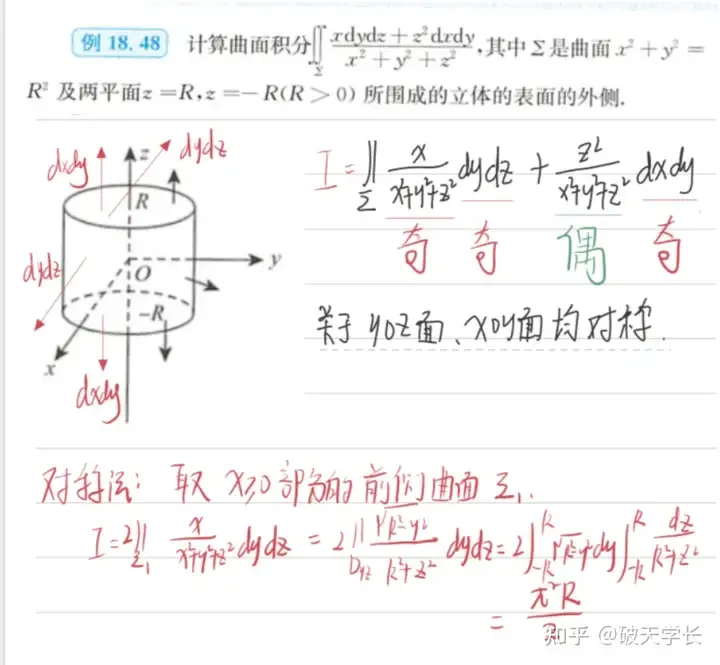 例 18.48 计算曲面积分∬_Σ (xdydz + z²dxdy)/(x² + y² + z²),其中 Σ 是曲面 x² + y² =
R² 及两平面 z = R, z = − R(R > 0) 所围成的立体的表面的外侧.
dxdy z dydz
R
dydz O y
−R
x
dxdy
I = ∬_Σ x/(x²+y²+z²) dydz + z²/(x²+y²+z²) dxdy
奇 奇 偶 奇
关于 yoz面、xoy面均对称.
对称法: 取 x≥0 部分的 前侧曲面 Σ₁.
I = 2∬_Σ₁ x/(x²+y²+z²) dydz = 2∬_Dyz √(R²-y²)/(R²+z²) dydz = 2∫_{-R}^{R} √(R²-y²) dy ∫_{-R}^{R} dz/(R²+z²)
= π²R/2
知乎 @破天学长